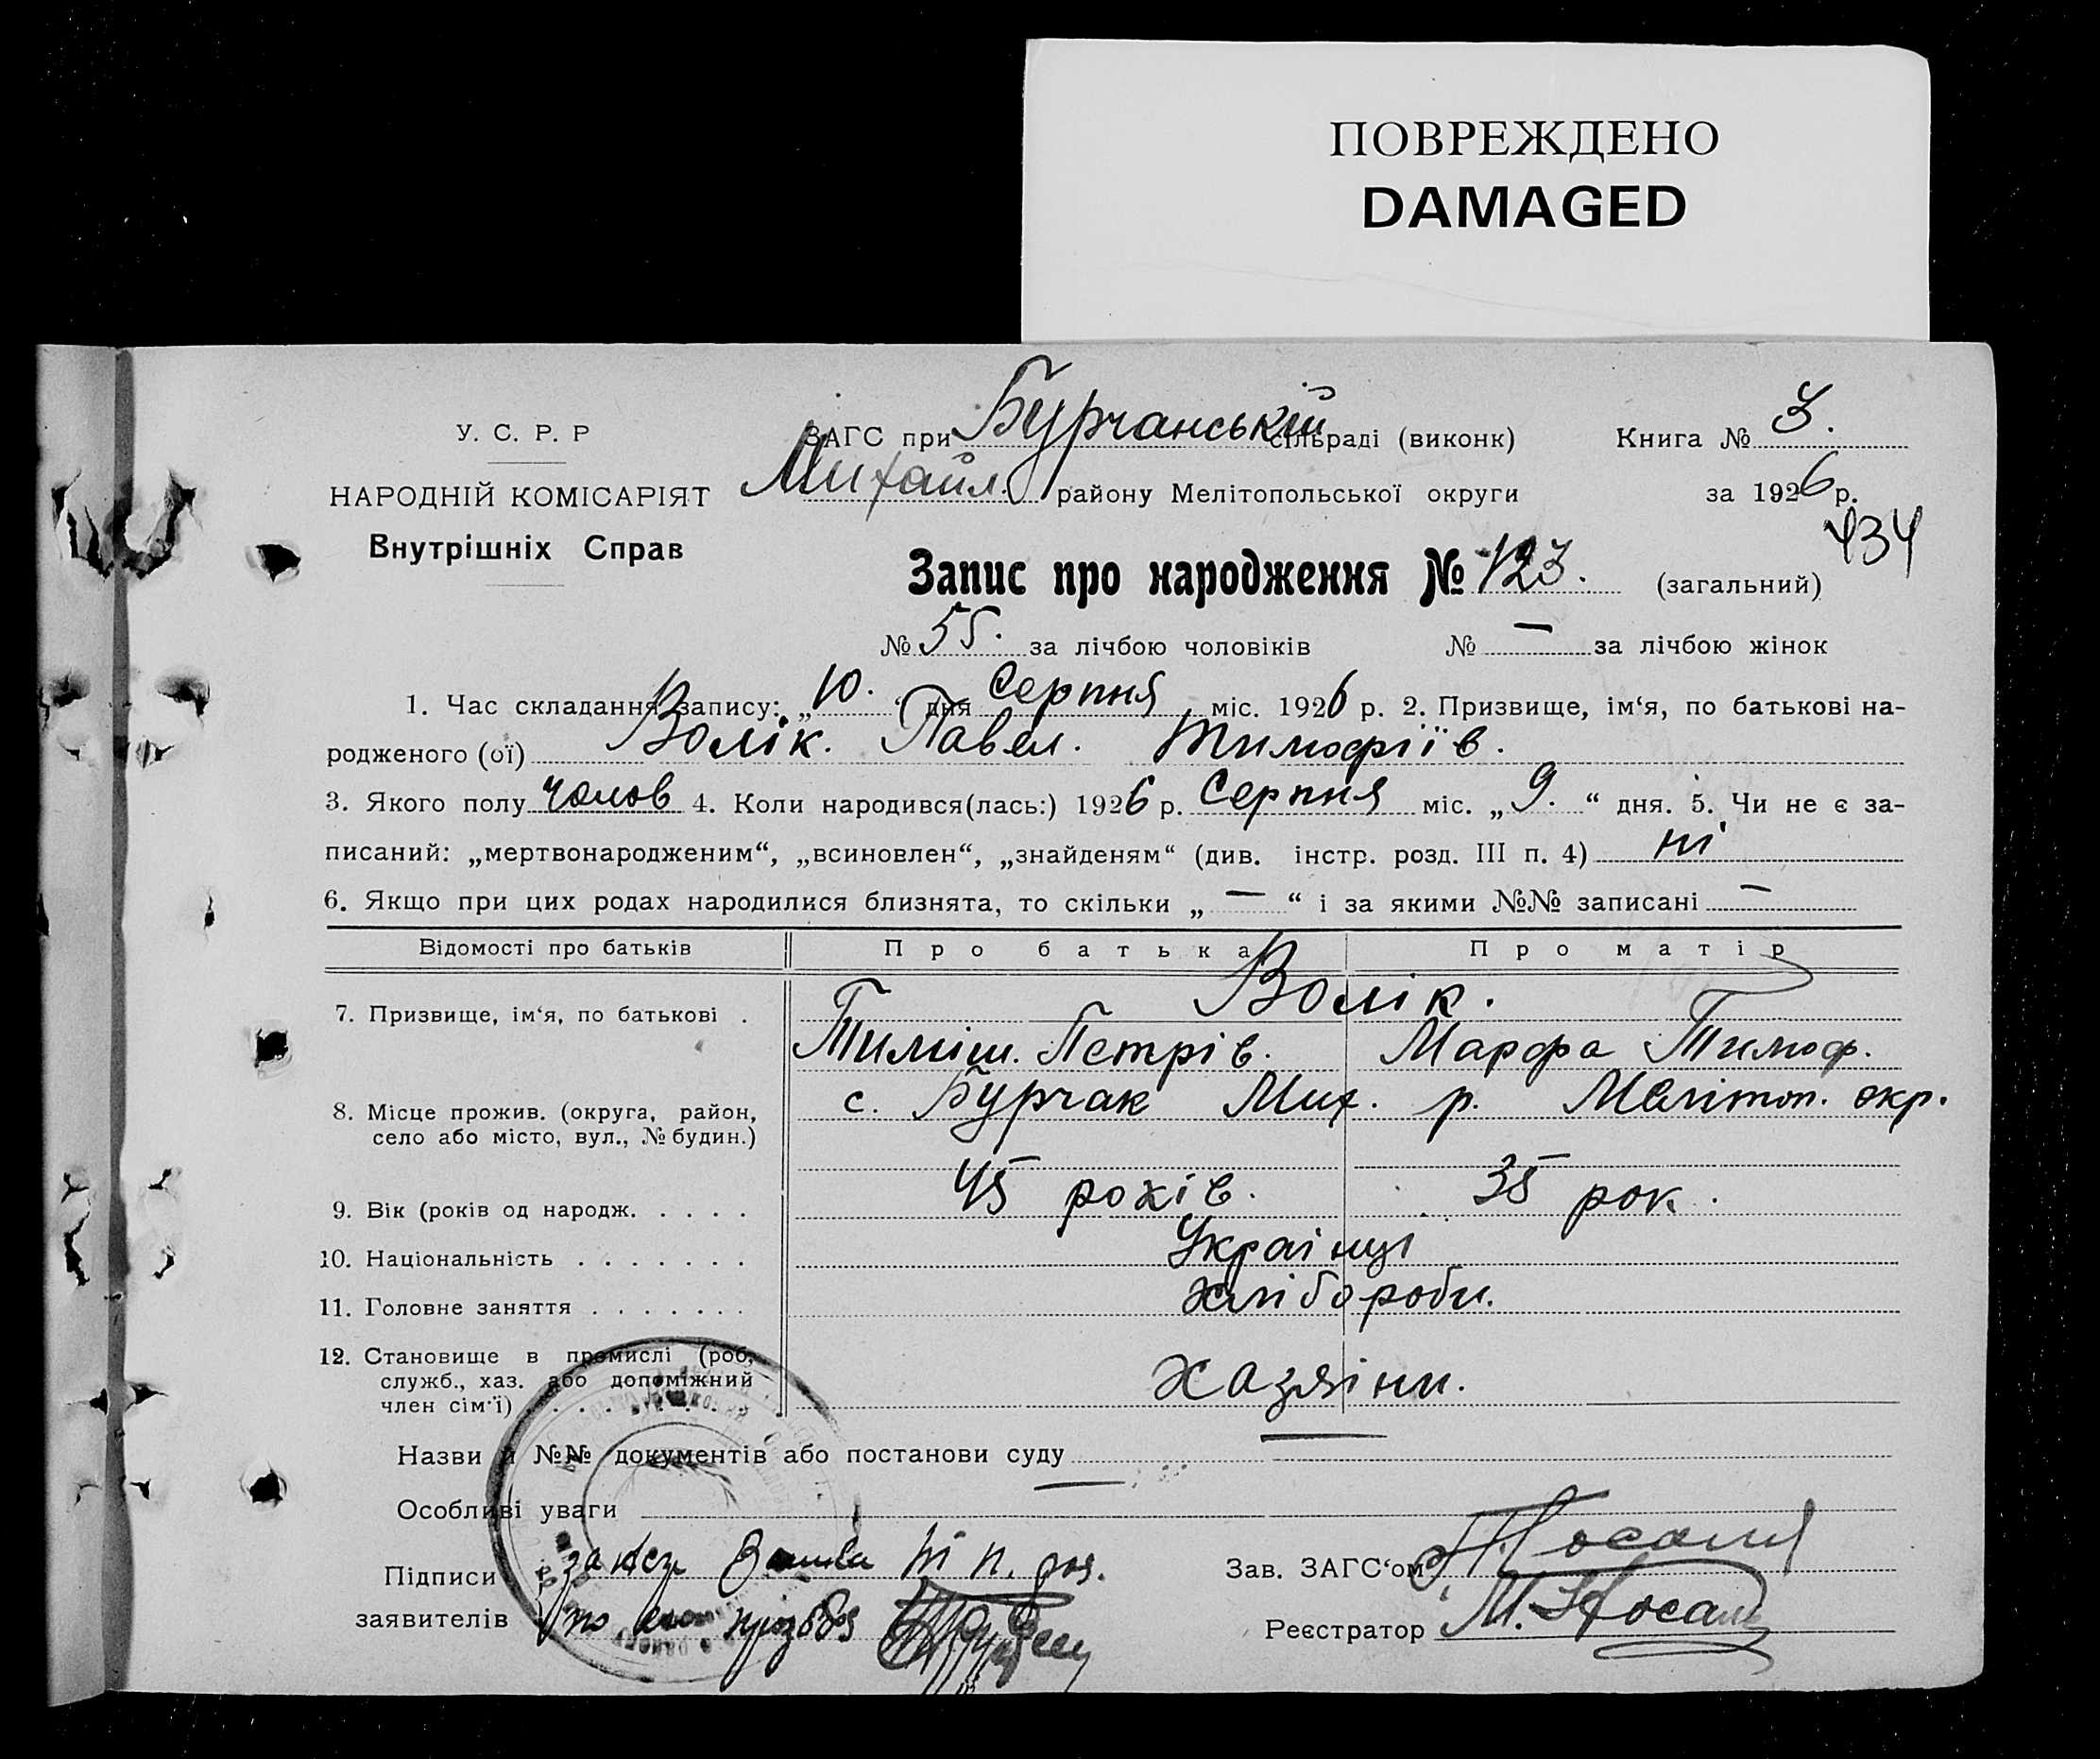 ПОВРЕЖДЕНО
DAMAGED
У. С. Р. Р
НАРОДНІЙ КОМІСАРІЯТ
Внутрішніх Справ
ЗАГС при Бурчанській сільраді (виконк) Книга № 3.
Михайл. району Мелітопольської округи за 1926 р.
434
Запис про народження № 123. (загальний)
№ 55. за лічбою чоловіків № — за лічбою жінок
1. Час складання запису: „10." дня Серпня міс. 1926 р. 2. Призвище, ім‘я, по батькові на-
родженого (ої) Волік. Павел. Тимофіїв.
3. Якого полу чолов 4. Коли народився(лась:) 1926 р. Серпня міс. „9.“ дня. 5. Чи не є за-
писаний: „мертвонародженим“, „всиновлен“, „знайденям“ (див. інстр. розд. III п. 4) ні
6. Якщо при цих родах народилися близнята, то скільки „—“ і за якими №№ записані —
Відомості про батьків Про батька Про матір
Волік.
7. Призвище, ім‘я, по батькові . Тиміш. Петрів. Марфа Тимоф.
8. Місце прожив. (округа, район, с. Бурчак Мих. р. Меліт��п. окр.
село або місто, вул., № будин.)
9. Вік (років од народж. . . . . 45 років. 35 рок.
10. Національність . . . . . . . Українці
11. Головне заняття . . . . . . . хлібороби.
12. Становище в промислі (роб,
служб., хаз. або допоміжний хазяіни.
член сім‘ї) . . . . . . .
Назви й №№ документів або постанови суду —
Особливі уваги —
Підписи п. Зав. ЗАГС‘ом Носаль
заявителів по его Реєстратор М. Носаль